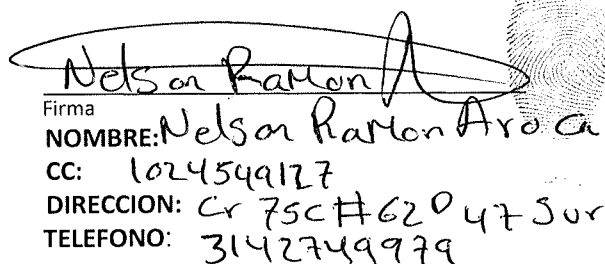 Nelson Ramon A
Firma
NOMBRE: Nelson Ramon Aroca
CC: 1024549127
DIRECCION: Cr 75C #62D 47 Sur
TELEFONO: 3142749979